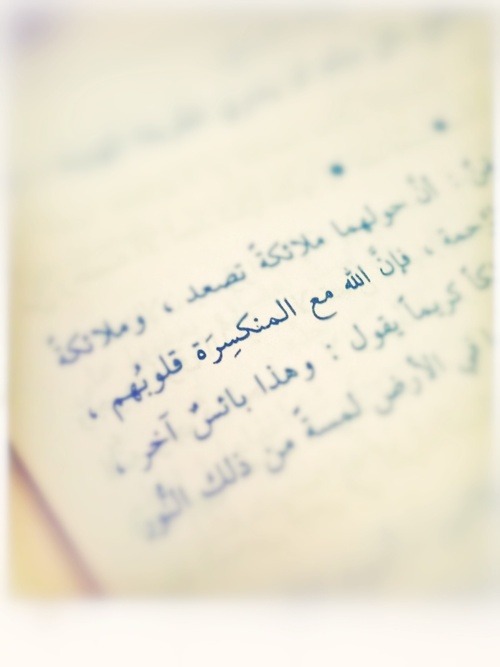 : انّ حولهما ملائكةً تصعد ، وملائكةً
، فإنّ الله مع المنكسِرَة قلوبُهم ،
كريماً يقول : وهذا بائسٌ آخر ،
الأرض لمسةً من ذلك النُّور